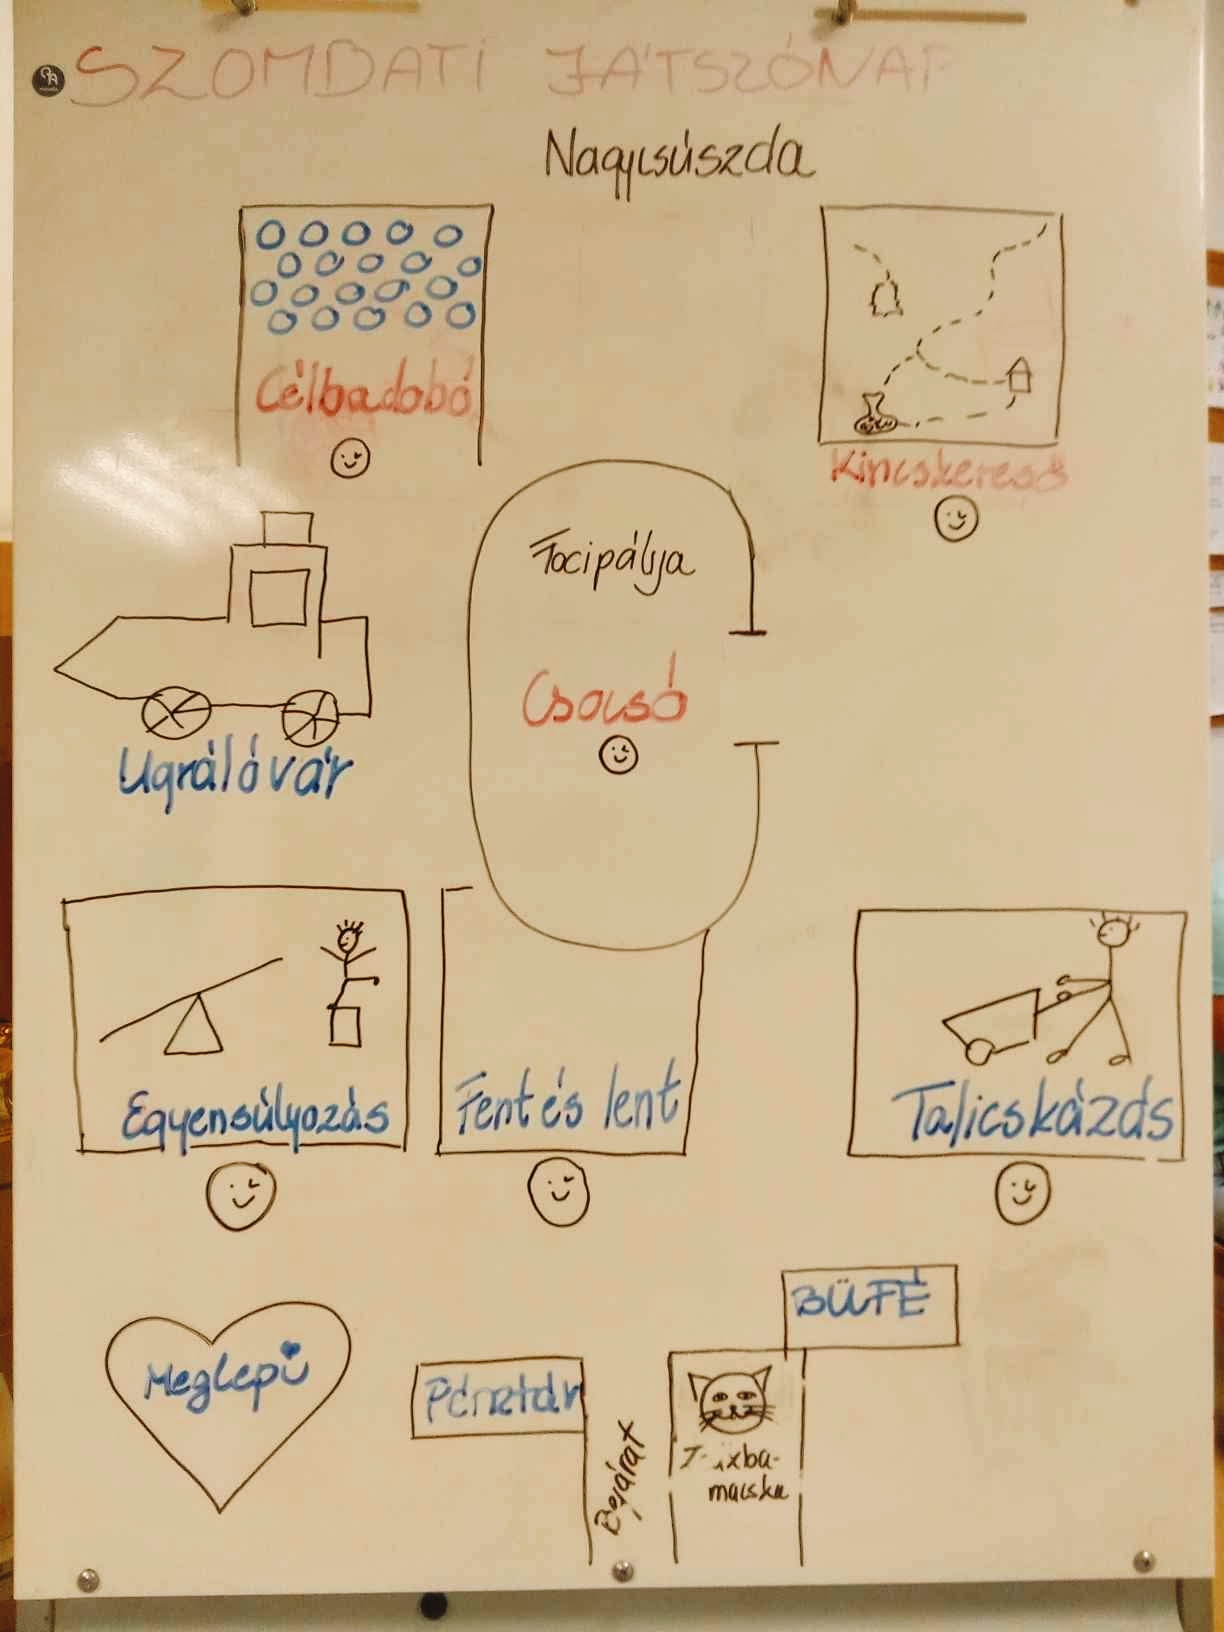 SZOMBATI JÁTSZÓNAP
Nagycsúszda
Célbadobó
Kincskereső
Focipálya
Csocsó
Ugrálóvár
Egyensúlyozás
Fent és lent
Talicskázás
BÜFÉ
Meglepi
Pénztár
Bejárat
macska